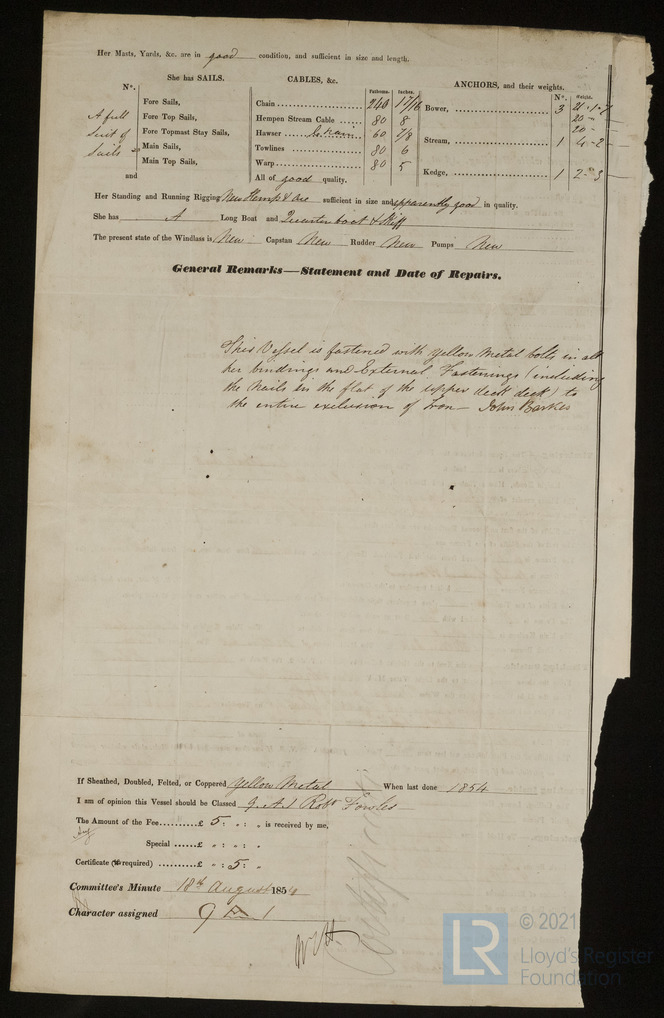 Her Masts, Yards, &c. are in good condition, and sufficient in size and length.
She has SAILS.
CABLES, &c.
ANCHORS, and their weights.
N°.
Fathoms.
Inches.
N°.
Weight.
A full
Suit of
Sails
and
Fore Sails,
Fore Top Sails,
Fore Topmast Stay Sails,
Main Sails,
Main Top Sails,
Chain 240 1 7/16
Hempen Stream Cable 80 8
Hawser Chain 60 7/8
Towlines 80 6
Warp 80 5
All of good quality.
Bower, 3 21 - 1 - 7
20 -
20 -
Stream, 1 4 - 2 -
Kedge, 1
Her Standing and Running Rigging New Hemp & are sufficient in size and apparently good in quality.
She has A Long Boat and Quarter boat & Skiff
The present state of the Windlass is New Capstan New Rudder New Pumps New
General Remarks—Statement and Date of Repairs.
This Vessel is fastened with Yellow Metal bolts in all
her bindings and External Fastenings (including
the Nails in the flat of the upper deck deck) to
the entire exclusion of Iron — John Barkes
If Sheathed, Doubled, Felted, or Coppered Yellow Metal When last done 1854
I am of opinion this Vessel should be Classed 9. A. 1 Robt Fowles
The Amount of the Fee.........£ 5 : „ : „ is received by me,
Special ......£ „ : „ : „
Certificate (if required) .........£ „ : 5 : „
Committee's Minute 18th August 1854
Character assigned 9 A 1
Certificate
© 2021
LR
Lloyd's Register
Foundation